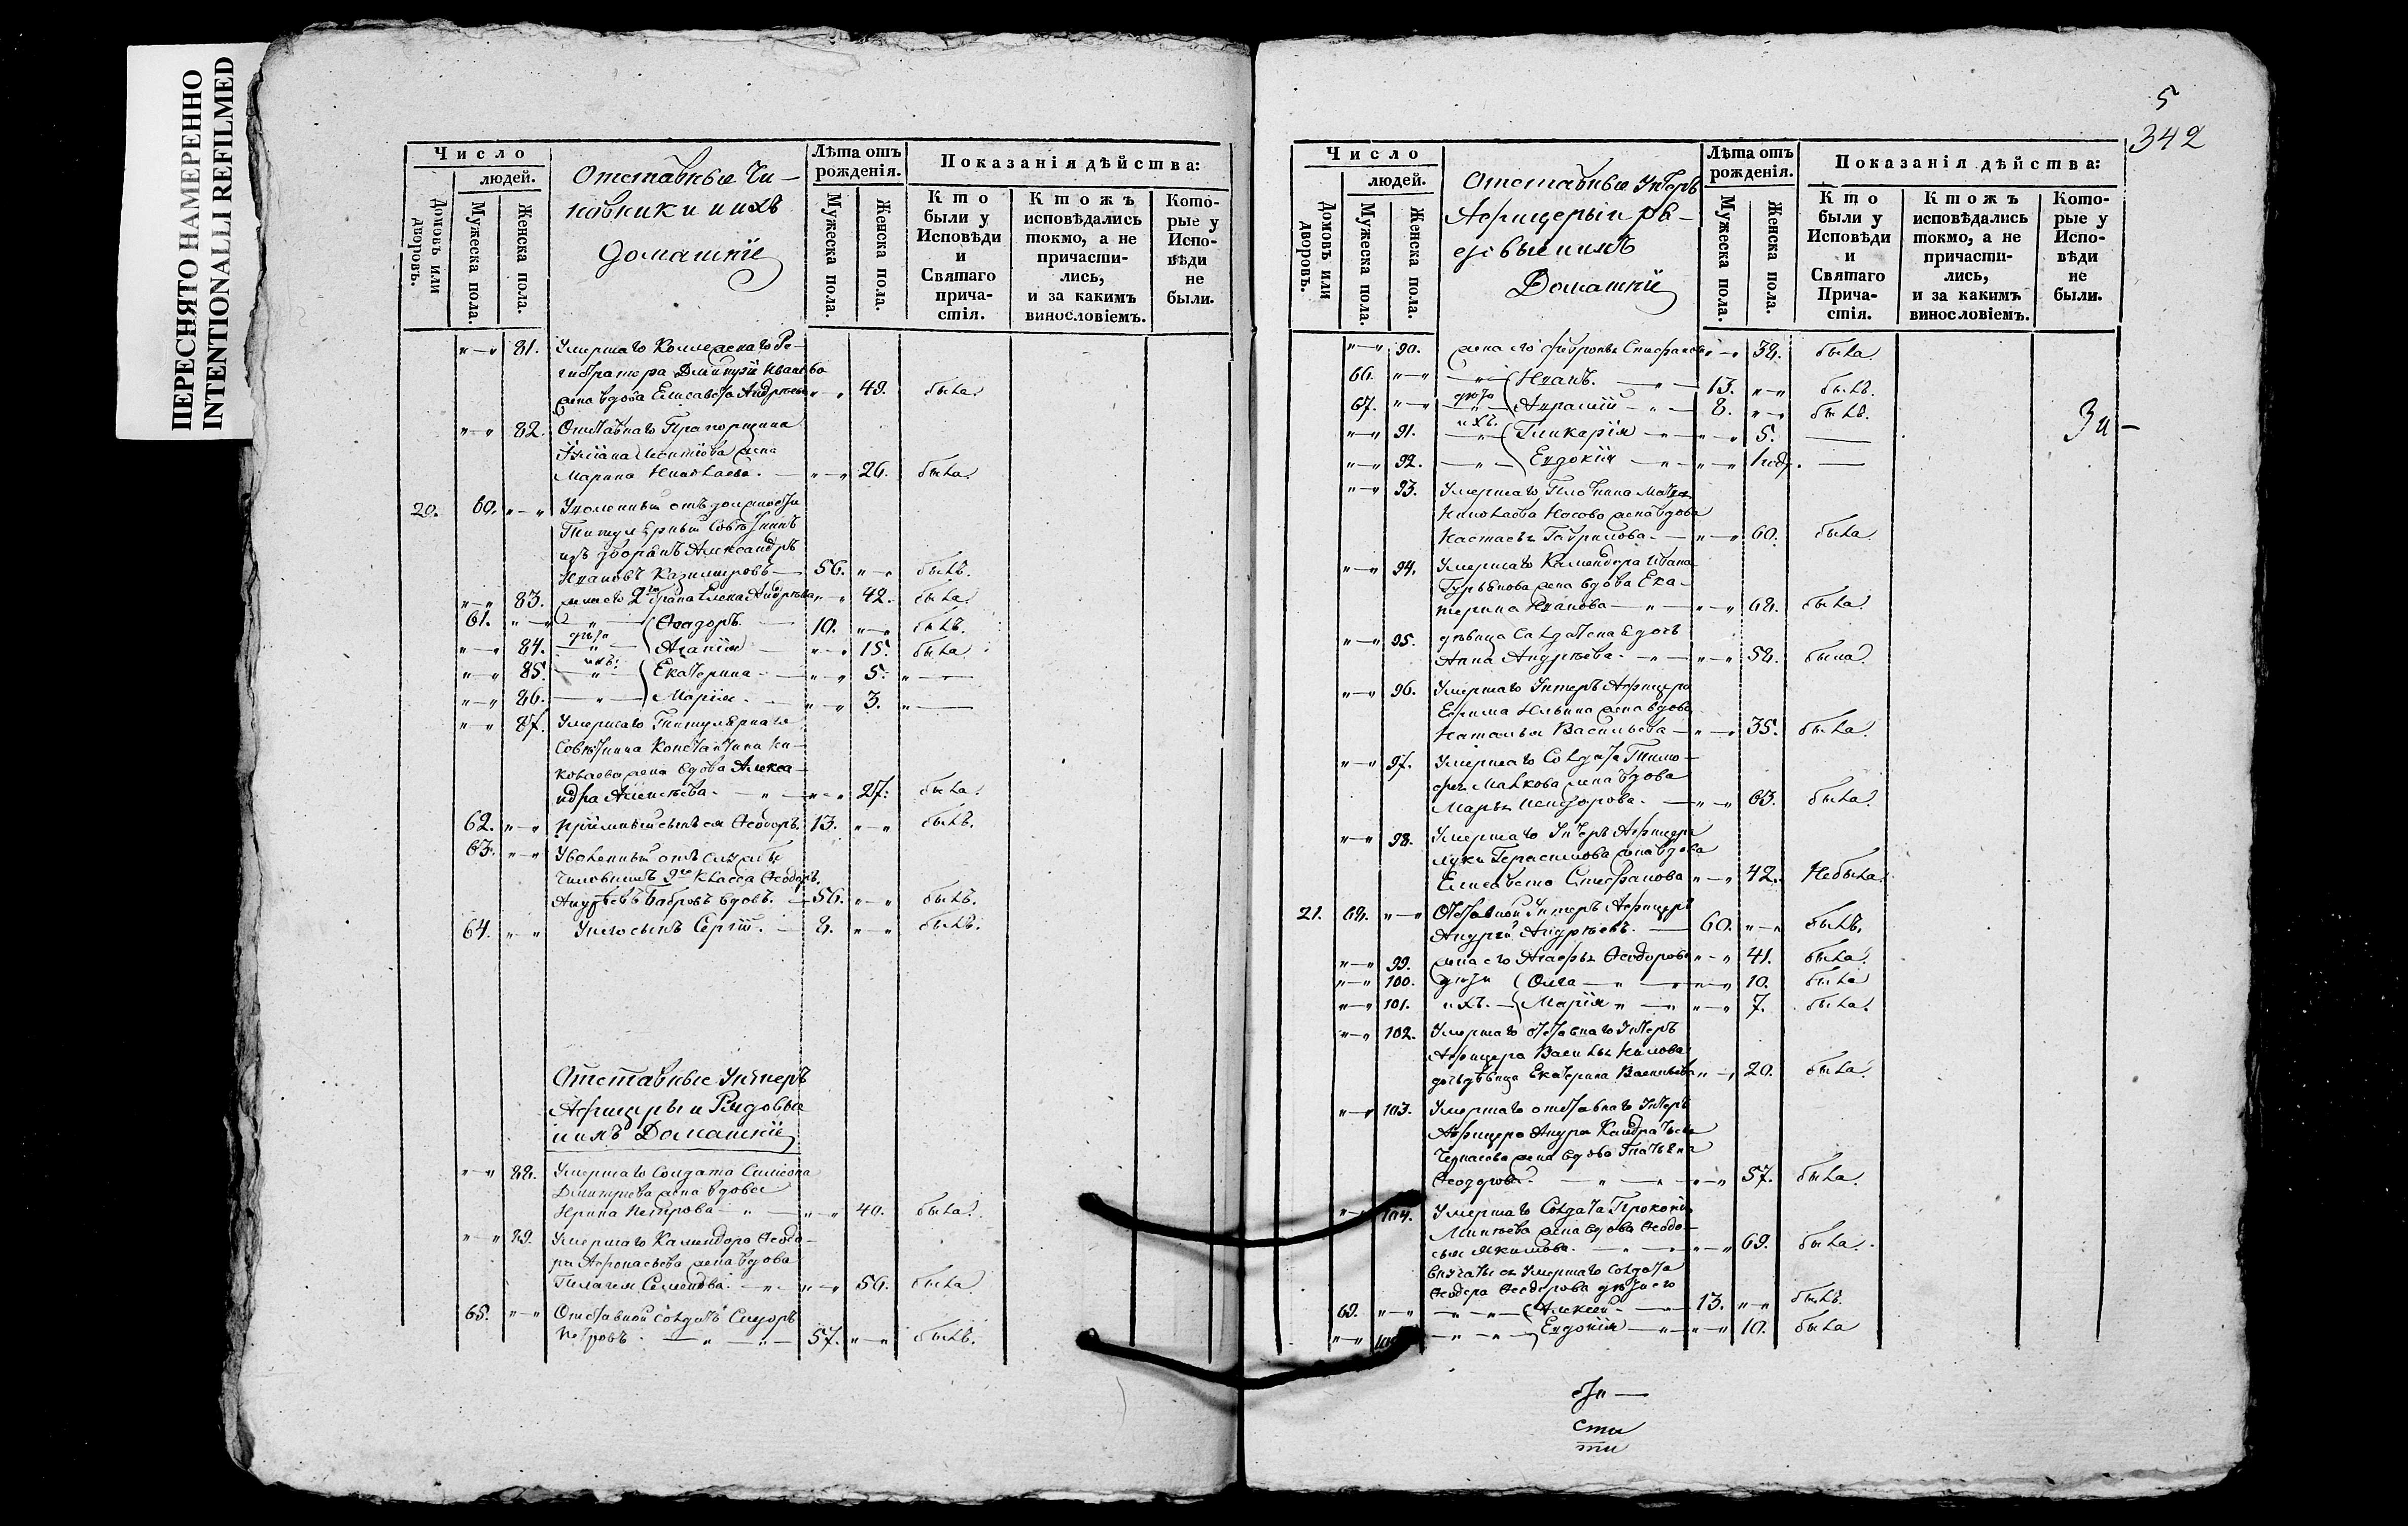 ПЕРЕСНЯТО НАМЕРЕННО
INTENTIONALLI REFILMED
Число
людей.
Домовъ или дворовъ.
Мужеска пола.
Женска пола.
Отставные Чи-
новники и ихъ
домашніе
Лѣта отъ рожденія.
Мужеска пола.
Женска пола.
Показанія дѣйства:
Кто были у Исповѣди и Святаго прича-стія.
Ктожъ исповѣдались токмо, а не причасти-лись, и за какимъ винословіемъ.
Кото-рые у Испо-вѣди не были.
81. Умершаго Коллежскаго Ре-
гистратора Дмитрія Иванова
жена вдова Елисавета Андреева 49. была
82. Отставнаго Прапорщика
жена
Марина Николаева 26. была
20. 60. Уволенный отъ должности
Титулярный Совѣтникъ
изъ дворянъ Александръ
Ивановъ Казимировъ 56. былъ.
83. жена его 2го брака Елена Андреева 42. была
61. Ѳеодоръ 10. былъ.
дѣти
84. Агапія 15. была
ихъ:
85. Екатерина 5.
86. Марія 3.
87. Умершаго Титулярнаго
Совѣтника Константина Ни-
колаева жена вдова Алекса-
ндра Алексѣева 27. была
62. пріемный сынъ ея Ѳеодоръ. 13. былъ.
63. Уволенный отъ службы
Чиновникъ 9го класса Ѳеодоръ
Андреевъ Бобровъ вдовъ. 56. былъ.
64. У него сынъ Сергій. 8. былъ.
Отставные Унтеръ
Афицеры и Рядовые
и ихъ Домашніе
88. Умершаго Солдата Симеона
Дмитріева жена вдова
Ирина Петрова 40. была
89. Умершаго Камендора Ѳеодо-
ра Афонасьева жена вдова
Пелагея Семенова 56. была
65. Отставной солдатъ Сидоръ
Петровъ 57. былъ.
5
342
Число
людей.
Домовъ или дворовъ.
Мужеска пола.
Женска пола.
Отставные Унтеръ
Афицеры и ря-
довые и ихъ
Домашніе
Лѣта отъ рожденія.
Мужеска пола.
Женска пола.
Показанія дѣйства:
Кто были у Исповѣди и Святаго Прича-стія.
Ктожъ исповѣдались токмо, а не причасти-лись, и за какимъ винословіемъ.
Кото-рые у Испо-вѣди не были.
90. жена его 38. была
66. Иванъ. 13. былъ
дѣти
67. 8. былъ.
ихъ.
91. Гликерія 5.
92. Евдокія 1 год.
93. Умершаго Плотника
Николаева Носова жена вдова
Настасья Гаврилова 60. была
94. Умершаго Камендора Ивана
Гурьянова жена вдова Ека-
терина Иванова 68. была
95. дѣвица Солдатская дочь
Анна Андреева 58. была
96. Умершаго Унтеръ Афицера
Ефима Ильина жена вдова
Наталья Васильева 35. была
97. Умершаго Солдата Тимо-
фея Малкова жена вдова
Марья 63. была
98. Умершаго Унтеръ Афицера
Луки Герасимова жена вдова
Елисавета Стефанова 42. Не была
21. 68. Отставной Унтеръ Афицеръ
Андрей Андреевъ. 60. былъ.
99. жена его Агафья Ѳеодорова 41. была
100. дѣти Олга 10. была
101. ихъ. Марія 7. была
102. Умершаго отставнаго Унтеръ
Афицера Василья
дочь дѣвица Екатерина Васильева 20. была
103. Умершаго отставнаго Унтеръ
Афицера Андрея Кондратьева
жена вдова Татьяна
Ѳеодорова 57. была
104. Умершаго Солдата Прокопія
жена вдова Ѳеодо-
сья Якимова 69. была
Внучаты ея умершаго солдата
Ѳеодора Ѳеодорова дѣти его
69. Алексей 13. былъ.
Евдокія 10. была
сти